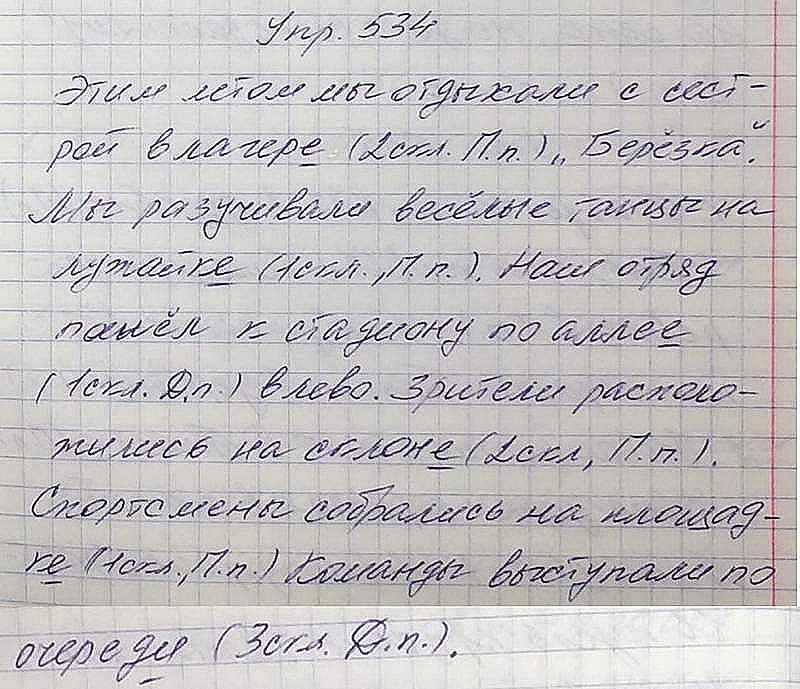 Упр. 534
Этим летом мы отдыхали с сест-
рой в лагере (2скл. П.п.) „Берёзка".
Мы разучивали весёлые танцы на
лужайке (1скл., П.п.). Наш отряд
пошёл к стадиону по аллее
(1скл. Д.п.) влево. Зрители располо-
жились на склоне (2скл, П.п.).
Спортсмены собрались на площад-
ке (1скл., П.п.) Команды выступали по
очереди (3скл. Д.п.).